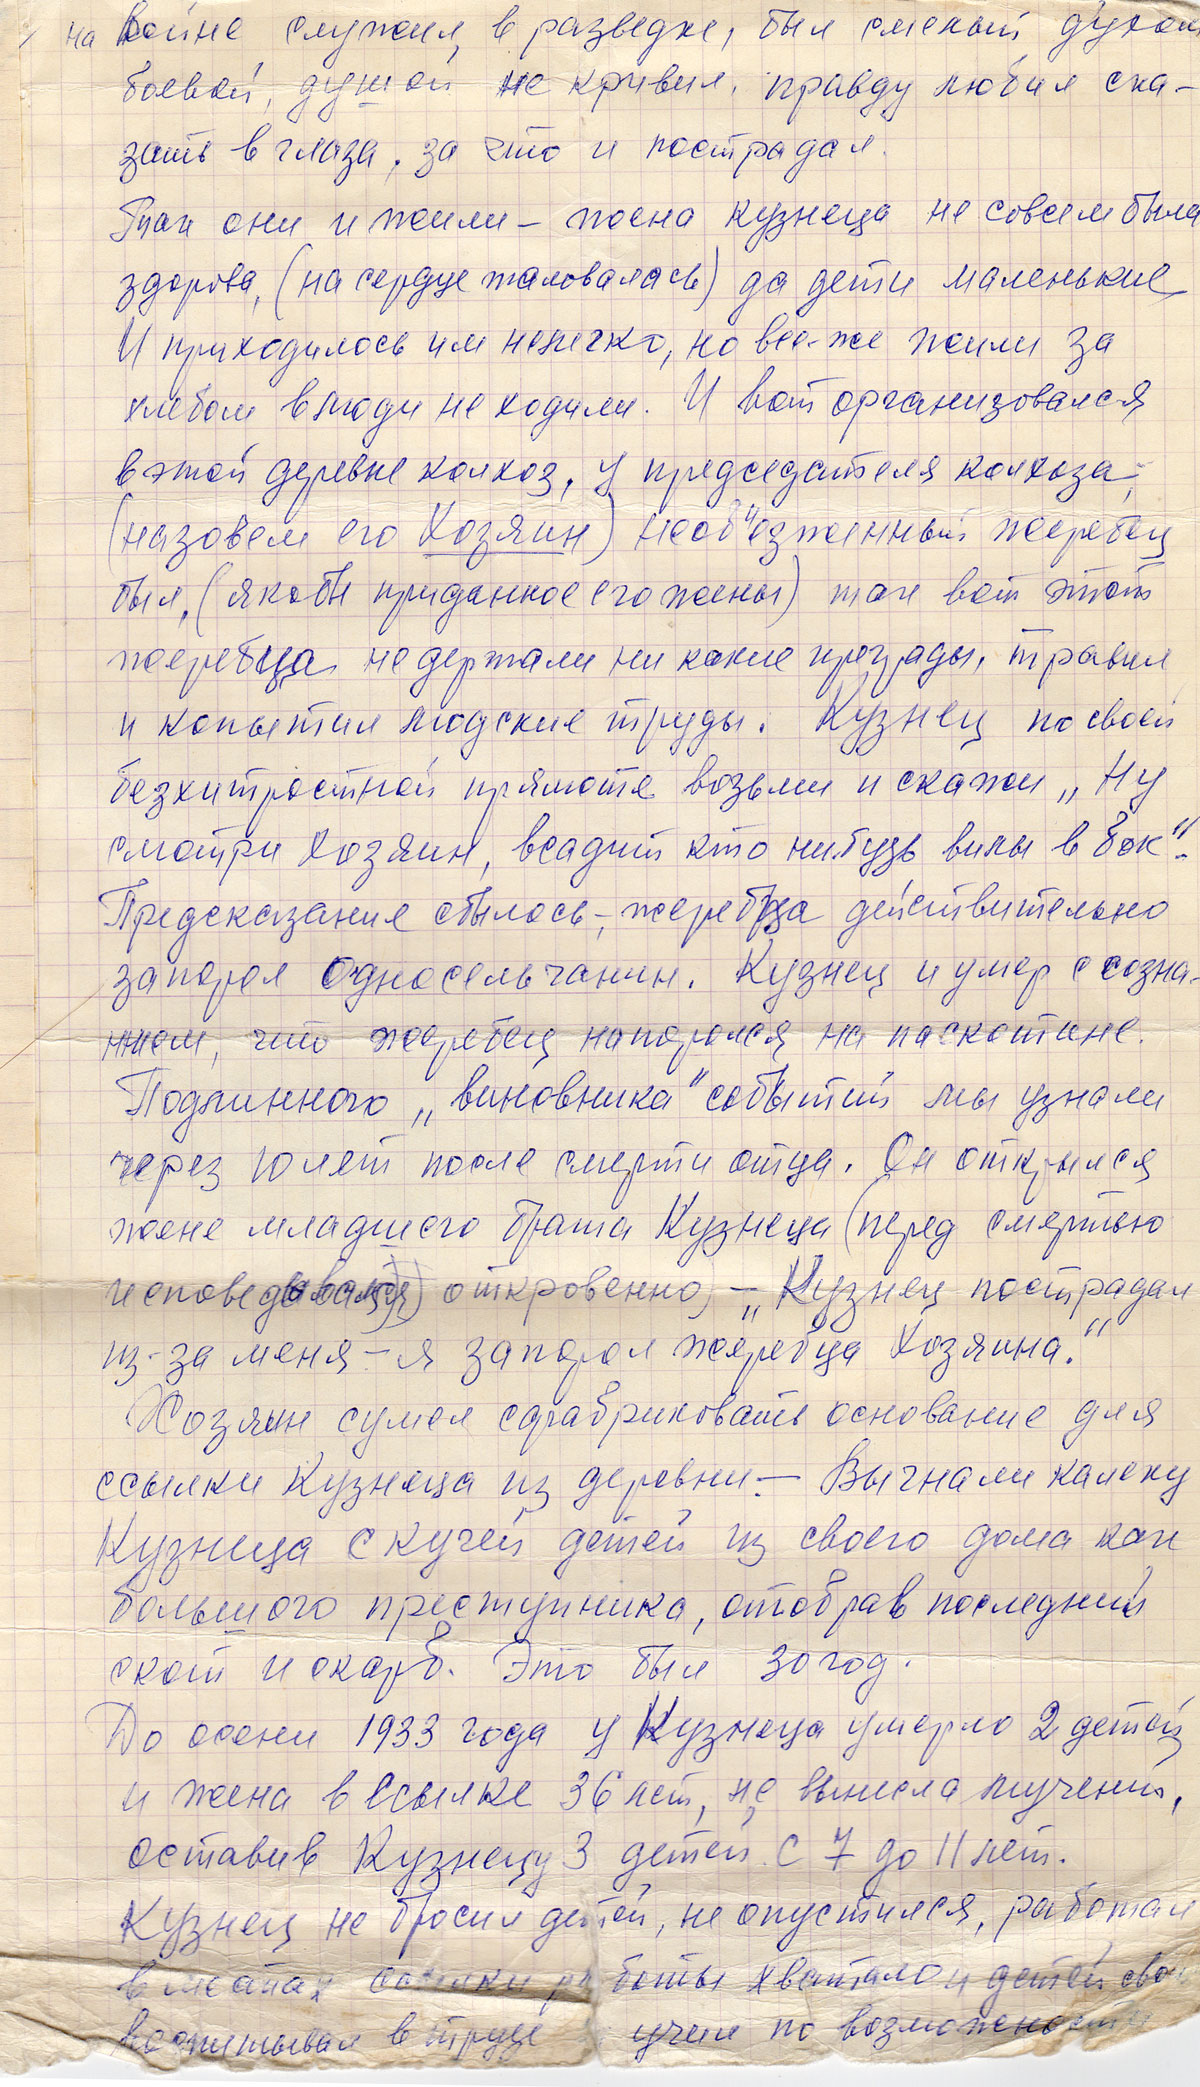 на войне служил, в разведке, был смелый духом
боевой, душой не кривил, правду любил ска-
зать в глаза, за что и пострадал.
Так они и жили – жена кузнеца не совсем была
здорова, (на сердце жаловалась) да дети маленькие
И приходилось им нелегко, но все-же жили за
хлебом в люди не ходили. И вот организовался
в этой деревне колхоз, у председателя колхоза,
(назовем его Хозяин) необъезженный жеребец
был, (якобы приданное его жены) так вот этот
жеребца не держали ни какие преграды, травил
и копытил людские труды. Кузнец по своей
безхитростной прямоте возьми и скажи „Ну
смотри Хозяин, всадит кто нибудь вилы в бок".
Предсказание сбылось, – жеребца действительно
запорол односельчанин. Кузнец и умер с созна-
нием, что жеребец напоролся на паскотине.
Подлинного „виновника" событий мы узнали
через 10 лет после смерти отца. Он открылся
жене младшего брата Кузнеца (перед смертью
исповедовался) откровенно, – „Кузнец пострадал
из-за меня – я запорол жеребца Хозяина."
Хозяин сумел сфабриковать основание для
ссылки Кузнеца из деревни – Выгнали калеку
Кузнеца с кучей детей из своего дома как
большого преступника, отобрав последний
скот и скарб. Это был 30 год.
До осени 1933 года у Кузнеца умерло 2 детей
и жена в ссылке 36 лет, не вынесла мучений,
оставив Кузнецу 3 детей с 7 до 11 лет.
Кузнец не бросил детей, не опустился, работал
в ссылки работы хватало и детей сво
воспитывал в труде учил по возможности